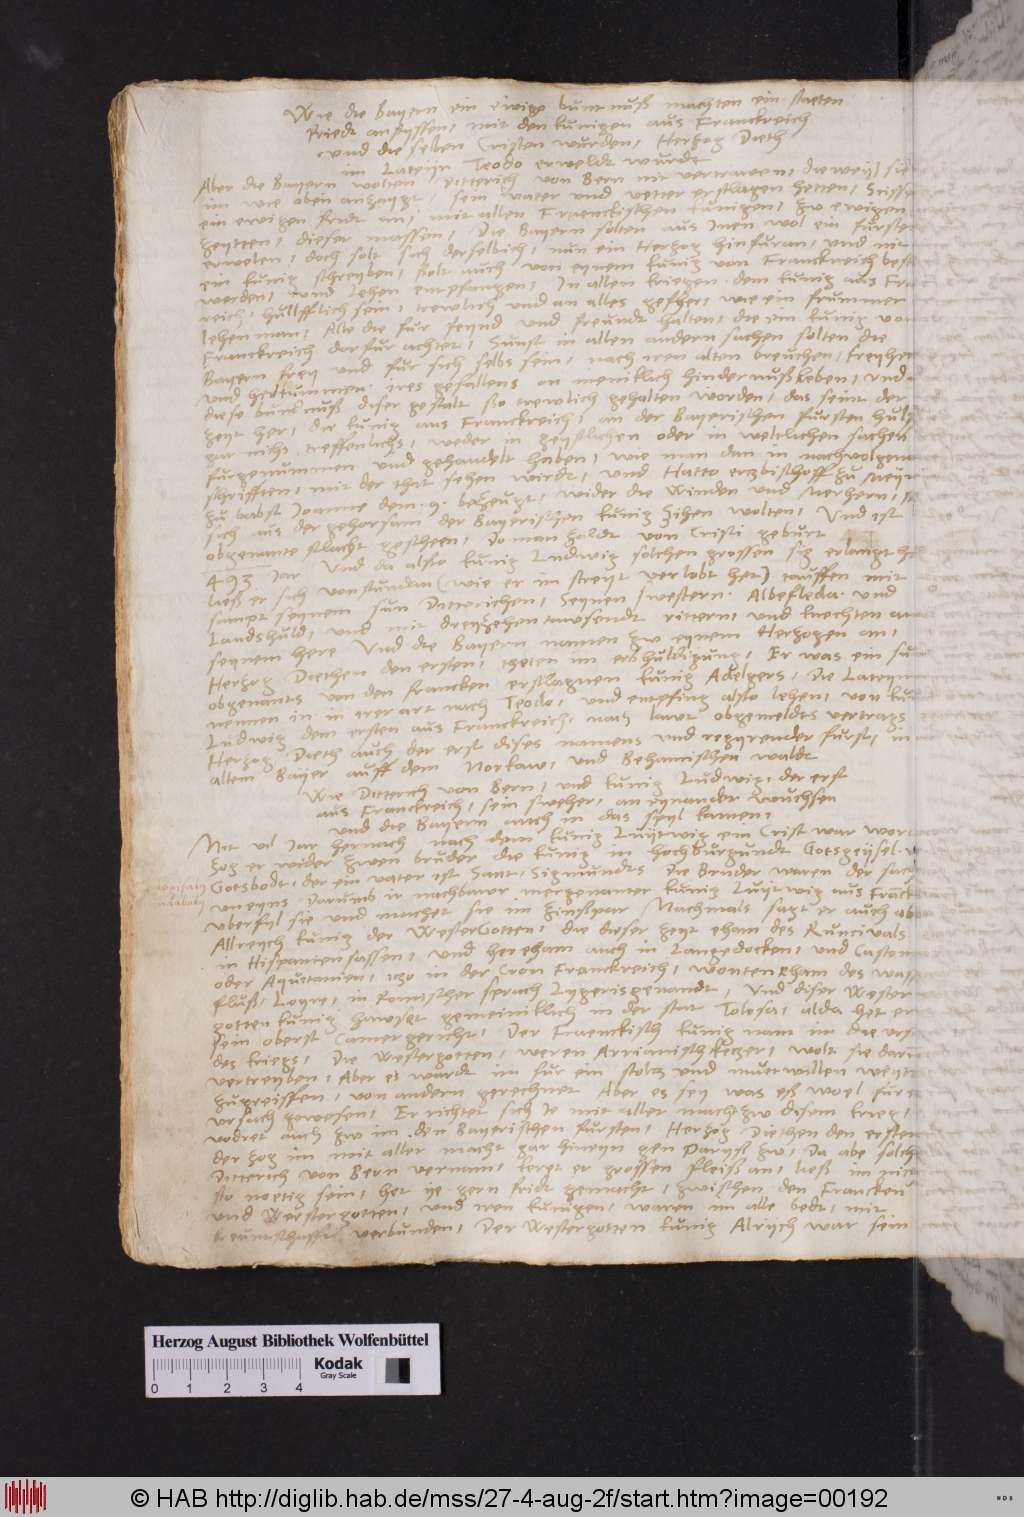 Wie die Bayern ein ewige buntnuß machten ein staeten
friedt anstyssen, mit den kunigen aus Franckreich
und die selben Cristen wurden, Herzog Dieth
im Lateyn Teodo erweldt wurdt
Aber die Bayern wolten Ditterich von Bern nit vertrawen, dieweyl sie
im wie oben anzaygt, sein vater und vetter erschlagen hetten,
ein ewigen fridt an, mit allen Franckischen kunigen, zw ewigen
zeytten, dieser massen, Die Bayern solten aus Inen wol ein fursten
erwelen, doch solt sich derselbich, nun ein Herzog hinfuran, und nit
ein kunig schreyben, solt auch von eynem kunig von Franckreich best
werden, und Lehen entpfangen, In allen kriegen dem kunig aus Fra
reich, hullfflich sein, trewlich und an alles gefher, wie ein frummer
lehenman, Alle die fur feynd und freundt halten, die ein kunig von
Franckreich darfur achtet, Sunst in allen andern sachen solten die
Bayern frey und fur sich selbs sein, nach iren alten breuchen, freyhe
und herkummen ires gefallens on meniklich hindernuß leben, und
diese buntnuß diser gestalt sso trewlich gehalten worden, das seint der
zeyt her, die kunig aus Franckreich, an der Bayerischen fursten hulff
gar nichs treffenlichs, weder in geystlichen oder in weltlichen sachen
furgenummen und gehandelt haben, wie man dan in nachvolgenden
schrifften, mit der that sehen wirdt, und Hatto erczbischoff zu Meyn
zu babst Joanne dem .9. bezeugt, wider die Winden und Merhern,
sich aus der gehorsam der Bayerischen kunig zihen wolten, Und ist
obgenante slacht gescheen, Do man zeldt von Cristi geburt
493 Jar Und da alsso kunig Ludwig solchen grossen sig erlangt h
ließ er sich vonstundan (wie er im streyt verlobt het) tauffen mit
sampt seynem sun Ditterichen, Seynen swestern. Albefleda. und
Landshuld, und mit dreyzehen tawsendt rittern, und knechten aus
seynem here Und die Bayern namen zw eynem Herzogen an,
Herzog Diethen den ersten, theten im erbhuldigung, Er was ein sun
obgenants von den francken erschlagnen kunig Adelgers, Die Lateyn
nennen in in irer art nach Teodo, und entpfing alsso lehen, von kunig
Ludwig dem ersten aus Franckreich, nach lawt obgemeldts vertrags
Herzog Dieth auch der erst dises namens und regyrender furst, in
altem Bayer auff dem Norkaw, und Behamischen waldt
Wie Dieterich von Bern, und kunig Ludwig, der erst
aus Franckreich, sein sweher, an eynander wuchsen
und die Bayern auch in das spyl kamen,
Nit vil Jar hernach nach dem kunig Luytwig ein Crist war word
zog er wider zwen bruder die kunig in hochburgundt Gotsgeysel.
Gotsbodt, der ein vater ist Sant, Sigmundts Die Bruder waren der sach
uneyns Darumb ir nachbawr mergenanter kunig Luytwig aus Franck
uberfyl sie und machet sie im zinßpar Nachmals sagt er auch ab
Allreych kunig der WesterGotten, die dieser zeyt eham des Runcivals
in Hispanien sassen, und hereham auch in Langedocken, und Caston
oder Aquitanien, itzo in der Cron Franckreich, wonten eham des wass
fluß, Loyre, in Romischer sprach Lygeris genandt, Und diser Wester
gotten kunig hawset gemeiniklich in der stat Tolosa, alda het er
sein oberst Camergericht, Der Franckisch kunig nam im die urs
des kriegs, Die Westergotten, weren Arrianisch keczer, wolt sie darum
vertreyben, Aber es wardt im fur ein stolz und mutwillen weyt
zugreiffen, von andern gerechnet Aber es sey was eß woel fur
ursach gewesen, Er richtet sich Je mit aller macht zw disem krieg,
vodret auch zw im, den Bayerischen fursten, Herzog Diethen den ersten
der zog im mit aller macht gar hineyn gen Paryß zw, Da abe solchs
Ditterich von Bern vernam, keret er grossen fleiß an, ließ im nicht
sso noetig sein, het ye gern fridt gemacht, zwischen den Francken
und Werstergotten, und iren kunigen, waren im alle bedt, mit
freuntschafft verbunden, Der Westergotten kunig Alrych war sein
Herzog August Bibliothek Wolfenbüttel
Kodak
Gray Scale
0 1 2 3 4
© HAB http://diglib.hab.de/mss/27-4-aug-2f/start.htm?image=00192